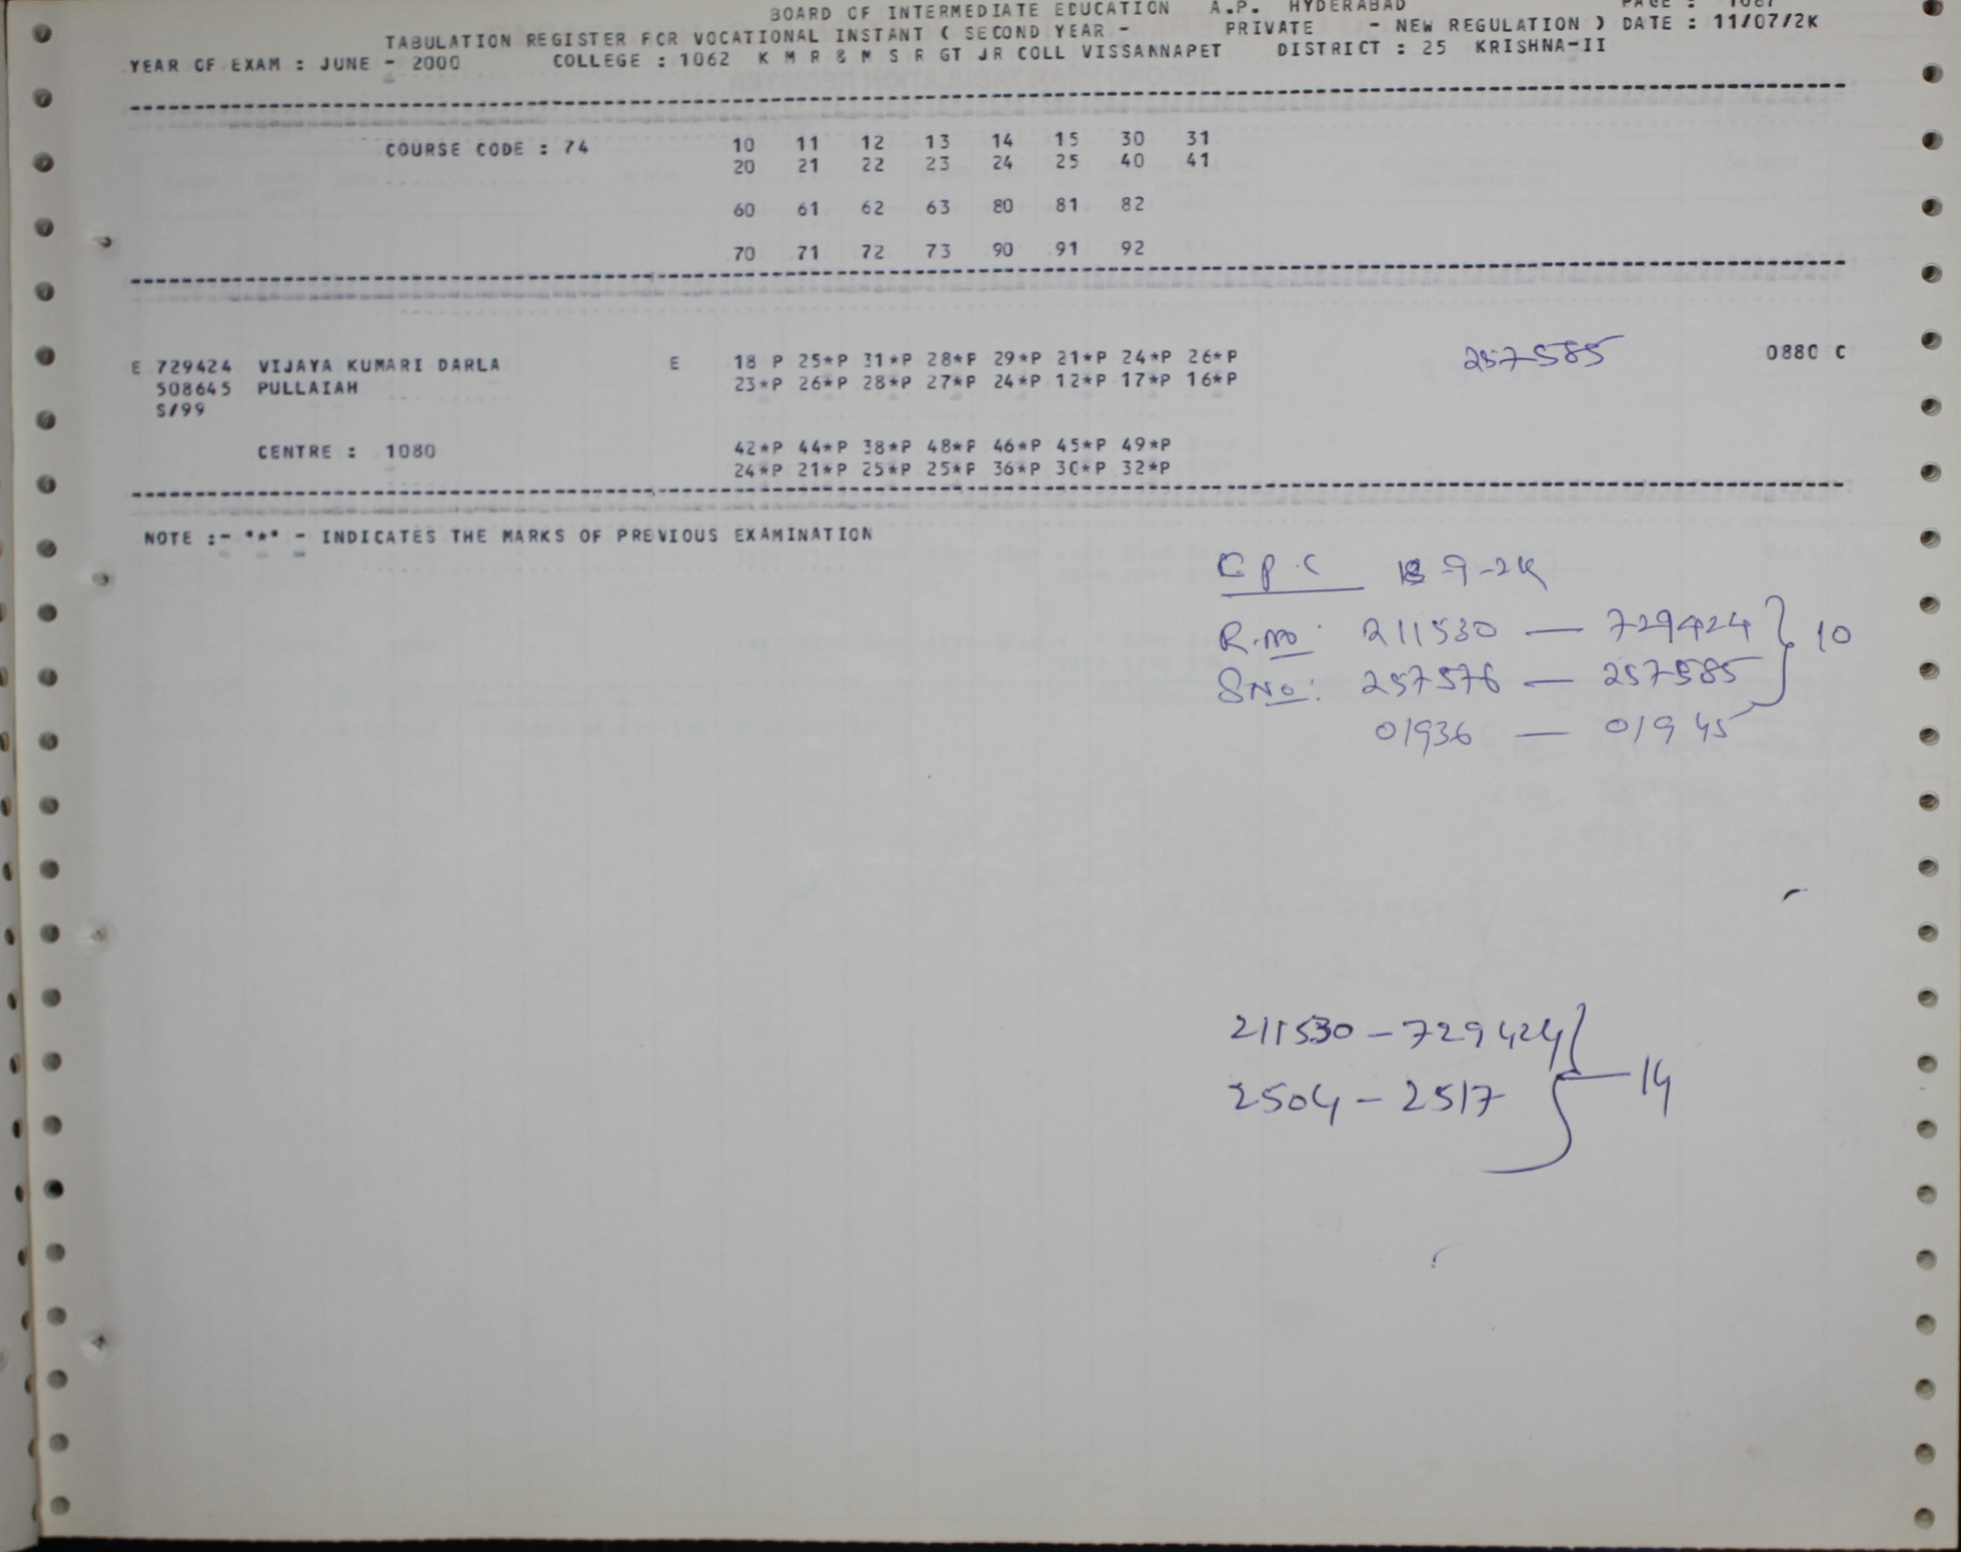 BOARD OF INTERMEDIATE EDUCATION A.P. HYDERABAD PAGE : 1087
TABULATION REGISTER FOR VOCATIONAL INSTANT ( SECOND YEAR - PRIVATE - NEW REGULATION ) DATE : 11/07/2K
YEAR OF EXAM : JUNE - 2000 COLLEGE : 1062 K M R & M S R GT JR COLL VISSANNAPET DISTRICT : 25 KRISHNA-II
COURSE CODE : 74 10 11 12 13 14 15 30 31
20 21 22 23 24 25 40 41
60 61 62 63 80 81 82
70 71 72 73 90 91 92
E 729424 VIJAYA KUMARI DARLA E 18 P 25*P 31*P 28*P 29*P 21*P 24*P 26*P 257585 0880 C
508645 PULLAIAH 23*P 26*P 28*P 27*P 24*P 12*P 17*P 16*P
S/99
CENTRE : 1080 42*P 44*P 38*P 48*P 46*P 45*P 49*P
24*P 21*P 25*P 25*P 36*P 30*P 32*P
NOTE :- "*" - INDICATES THE MARKS OF PREVIOUS EXAMINATION
9-2K
R.no: 211530 — 729424 } 10
SNo: 257576 — 257585
01936 — 01945
211530 - 729424 } 14
2504 - 2517